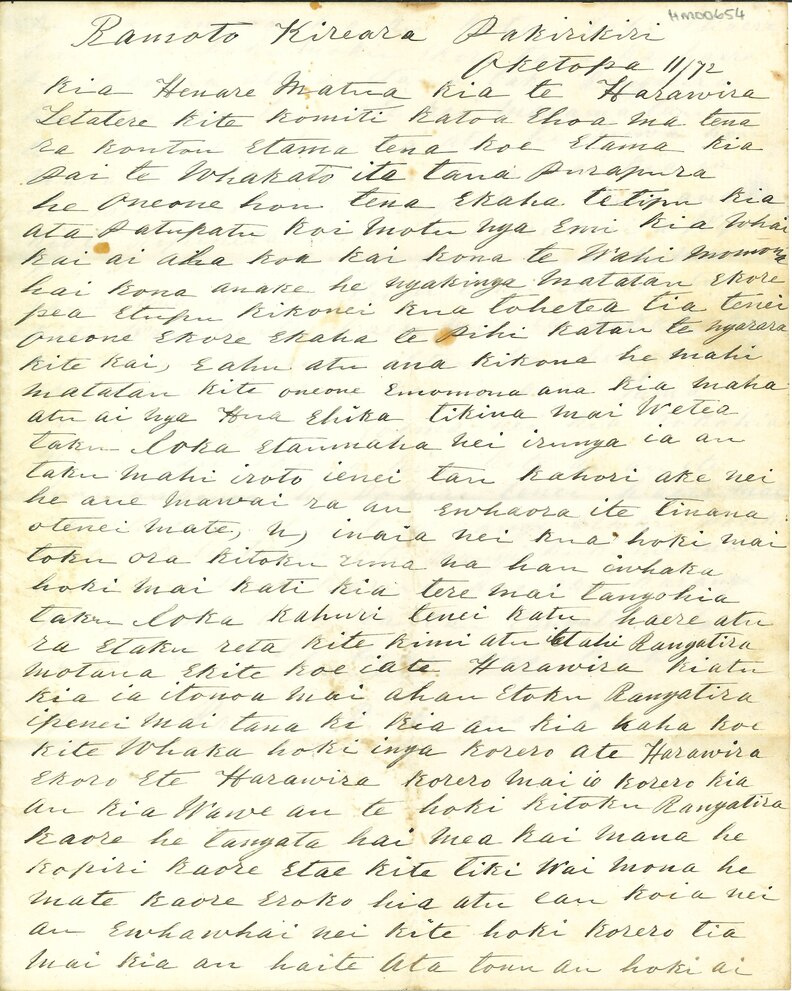 HM00654
Ramoto Kireara Pakirikiri
Oketopa 11/72
Kia Henare Matua Kia te Harawira
Tetatere Kite Komiti Katoa Ehoa ma tena
ra Koutou Etama tena koe Etama kia
pai te Whakato ite tana purapura
he Oneone hou tena Ekaha te tipu kia
ata patupatu koi motu nga Emi kia whai
kai ai aha koa kai kona te Wahi momona
hai kona anake he ngakinga matatau Ekore
pea Etupu kikonei kua tohetea tia tenei
Oneone Ekore Ekaha te pihi katau te ngarara
kite kai, Eahu atu ana kikona he mahi
matatau kite oneone Emomona ana kia maha
atu ai nga Hua Ehika tikina mai Wetea
taku Loka Etaumaha nei irunga ia au
taku mahi iroto ienei tau kahori ake nei
he aue mawai ra au Ewhaora ite tinana
otenei mate, u, inaia nei kua hoki mai
toku ora kitoku na hau iwhaka
hoki mai kati kia tere mai tangohia
taku Loka kahuri tenei katu haere atu
ra Etaku reta kite kimi atu itahi Rangatira
motana Ekite koe iate Harawira kiatu
kia ia itonoa mai ahau Etoku Rangatira
ipenei mai tana ki kia au kia kaha koe
kite Whaka hoki inga korero ate Harawira
Ekoro Ete Harawira korero mai io korero kia
au kia Wawe au te hoki kitoku Rangatira
kaore he tangata hai mea kai mana he
kopiri kaore Etae kite tiki Wai mona he
mate kaore Eroko hia atu eau koia nei
au Ewhawhai nei kite hoki korero tia
mai kia au haite Ata tonu au hoki ai